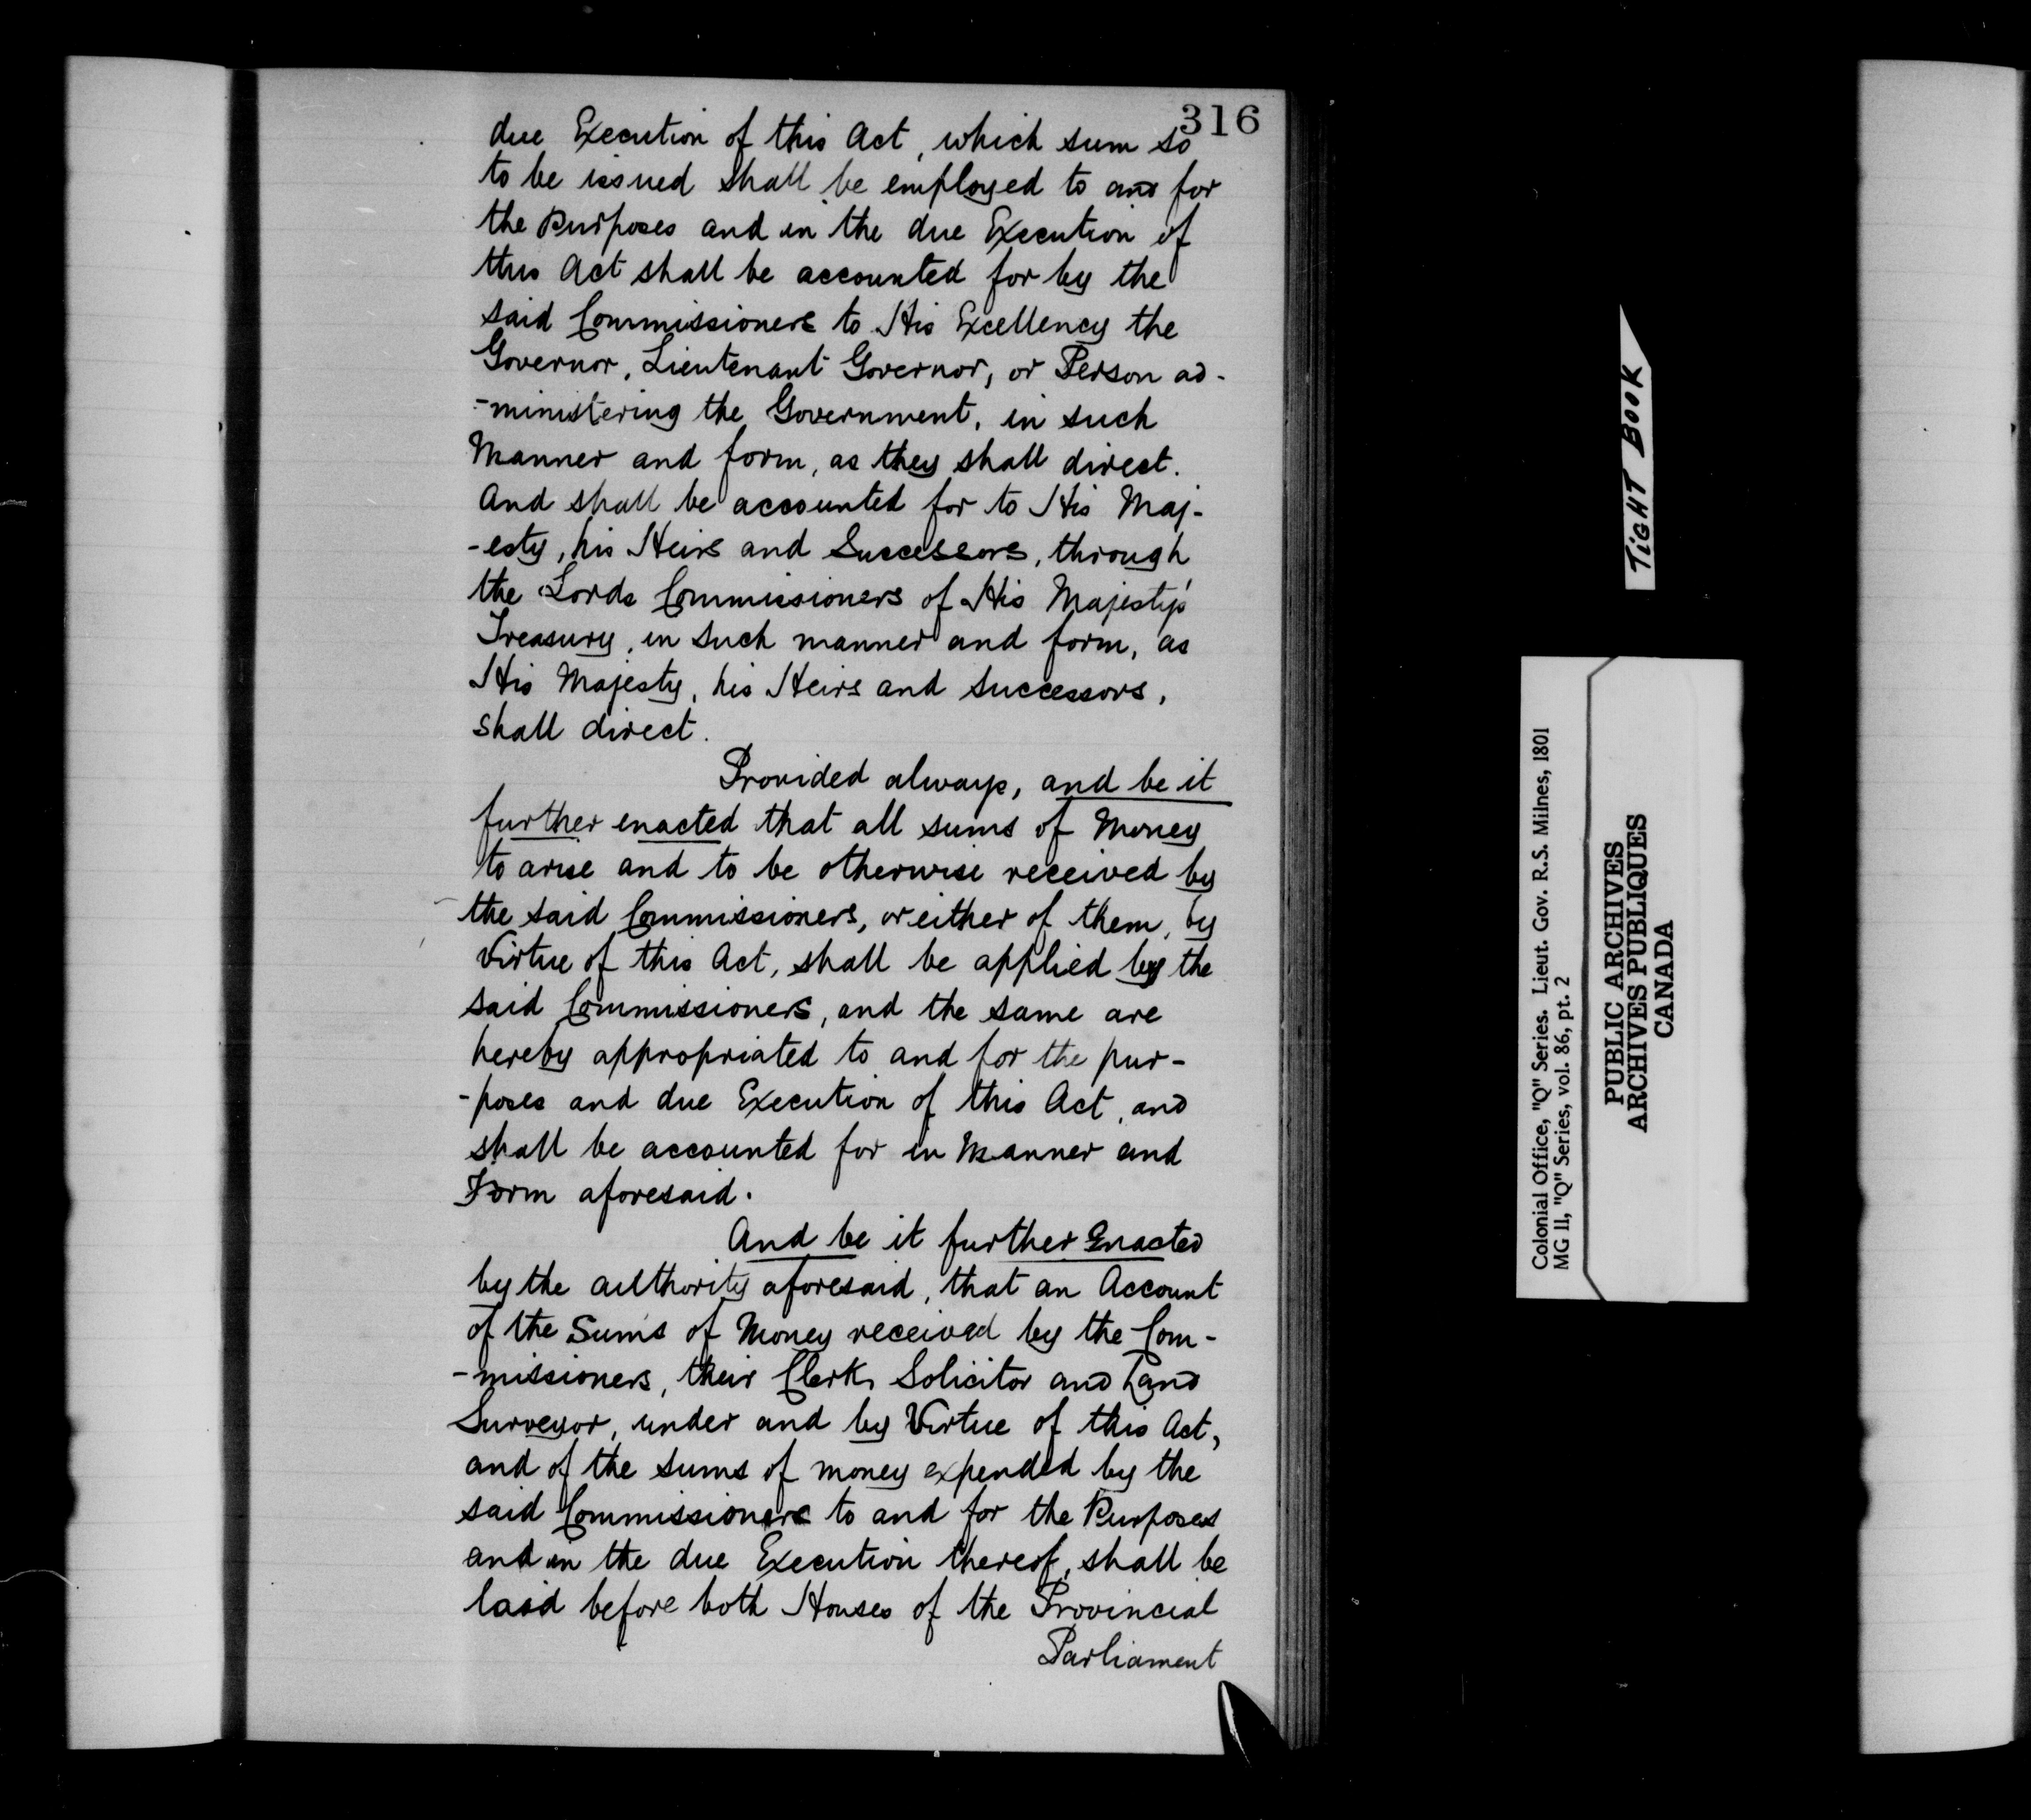 316
due Execution of this Act, which sum so
to be issued shall be employed to and for
the Purposes and in the due Execution of
this Act shall be accounted for by the
said Commissioners to His Excellency the
Governor, Lieutenant Governor, or Person ad-
-ministering the Government, in such
Manner and form, as they shall direct.
And shall be accounted for to His Maj-
-esty, his Heirs and Successors, through
the Lords Commissioners of His Majesty's
Treasury, in such manner and form, as
His Majesty, his Heirs and successors,
shall direct.
Provided always, and be it
further enacted that all sums of Money
to arise and to be otherwise received by
the said Commissioners, or either of them, by
Virtue of this Act, shall be applied by the
said Commissioners, and the same are
hereby appropriated to and for the pur-
-poses and due Execution of this Act, and
shall be accounted for in Manner and
Form aforesaid.
And be it further Enacted
by the authority aforesaid, that an Account
of the Sums of Money received by the Com-
-missioners, their Clerk, Solicitor and Land
Surveyor, under and by Virtue of this Act,
and of the sums of money expended by the
said Commissioners to and for the Purposes
and in the due Execution thereof, shall be
laid before both Houses of the Provincial
Parliament
TIGHT BOOK
Colonial Office, "Q" Series. Lieut. Gov. R.S. Milnes, 1801
MG 11, "Q" Series, vol. 86, pt. 2
PUBLIC ARCHIVES
ARCHIVES PUBLIQUES
CANADA